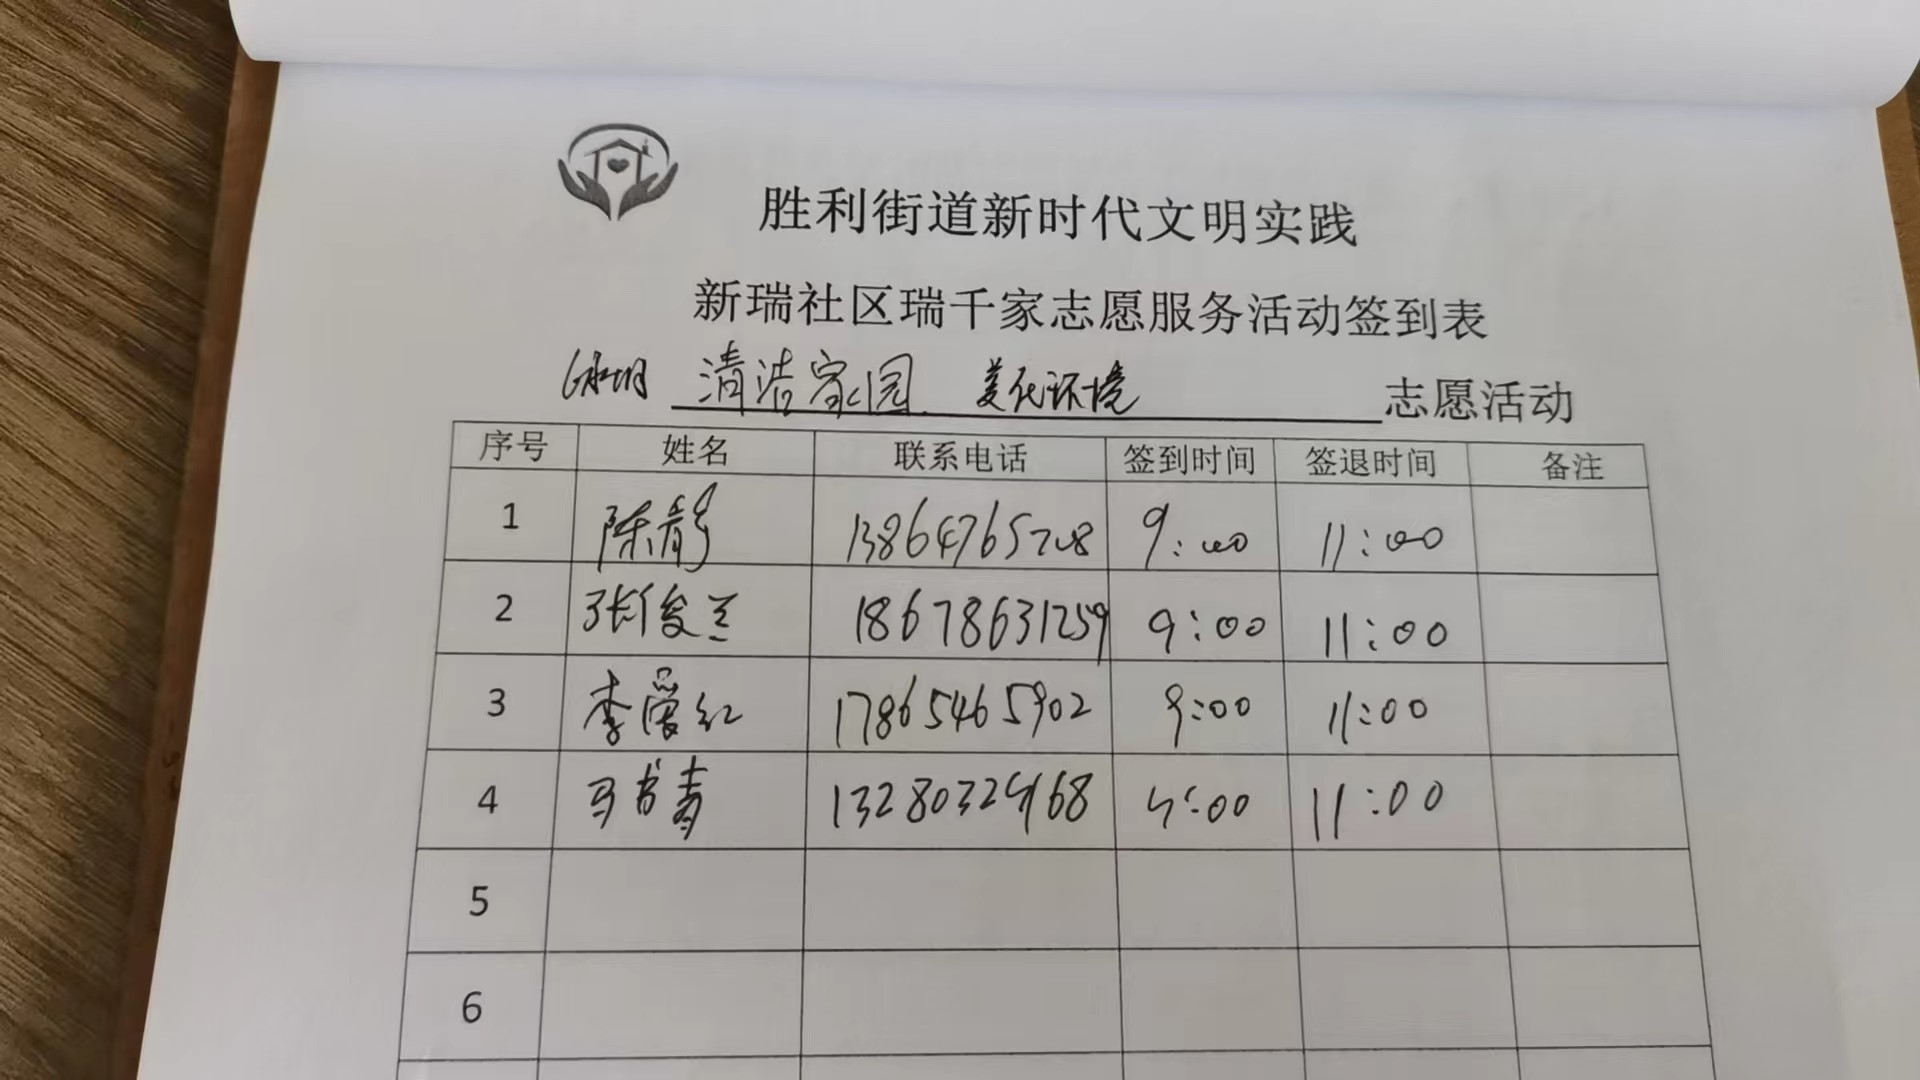 胜利街道新时代文明实践
新瑞社区瑞千家志愿服务活动签到表
清洁家园 美化环境 志愿活动
序号 姓名 联系电话 签到时间 签退时间 备注
1 陈静 13864765708 9:00 11:00
2 张俊兰 18678631259 9:00 11:00
3 李爱红 17865465902 9:00 11:00
4 马书青 13280324168 9:00 11:00
5
6